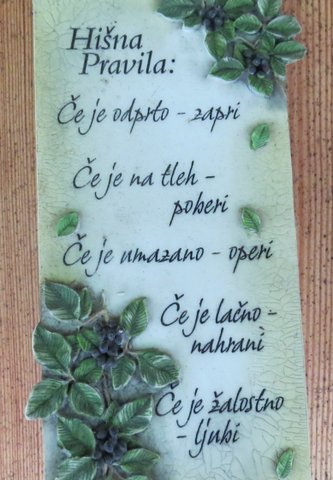 Hišna
Pravila:
Če je odprto - zapri
Če je na tleh -
poberi
Če je umazano - operi
Če je lačno -
nahrani
Če je žalostno
- ljubi